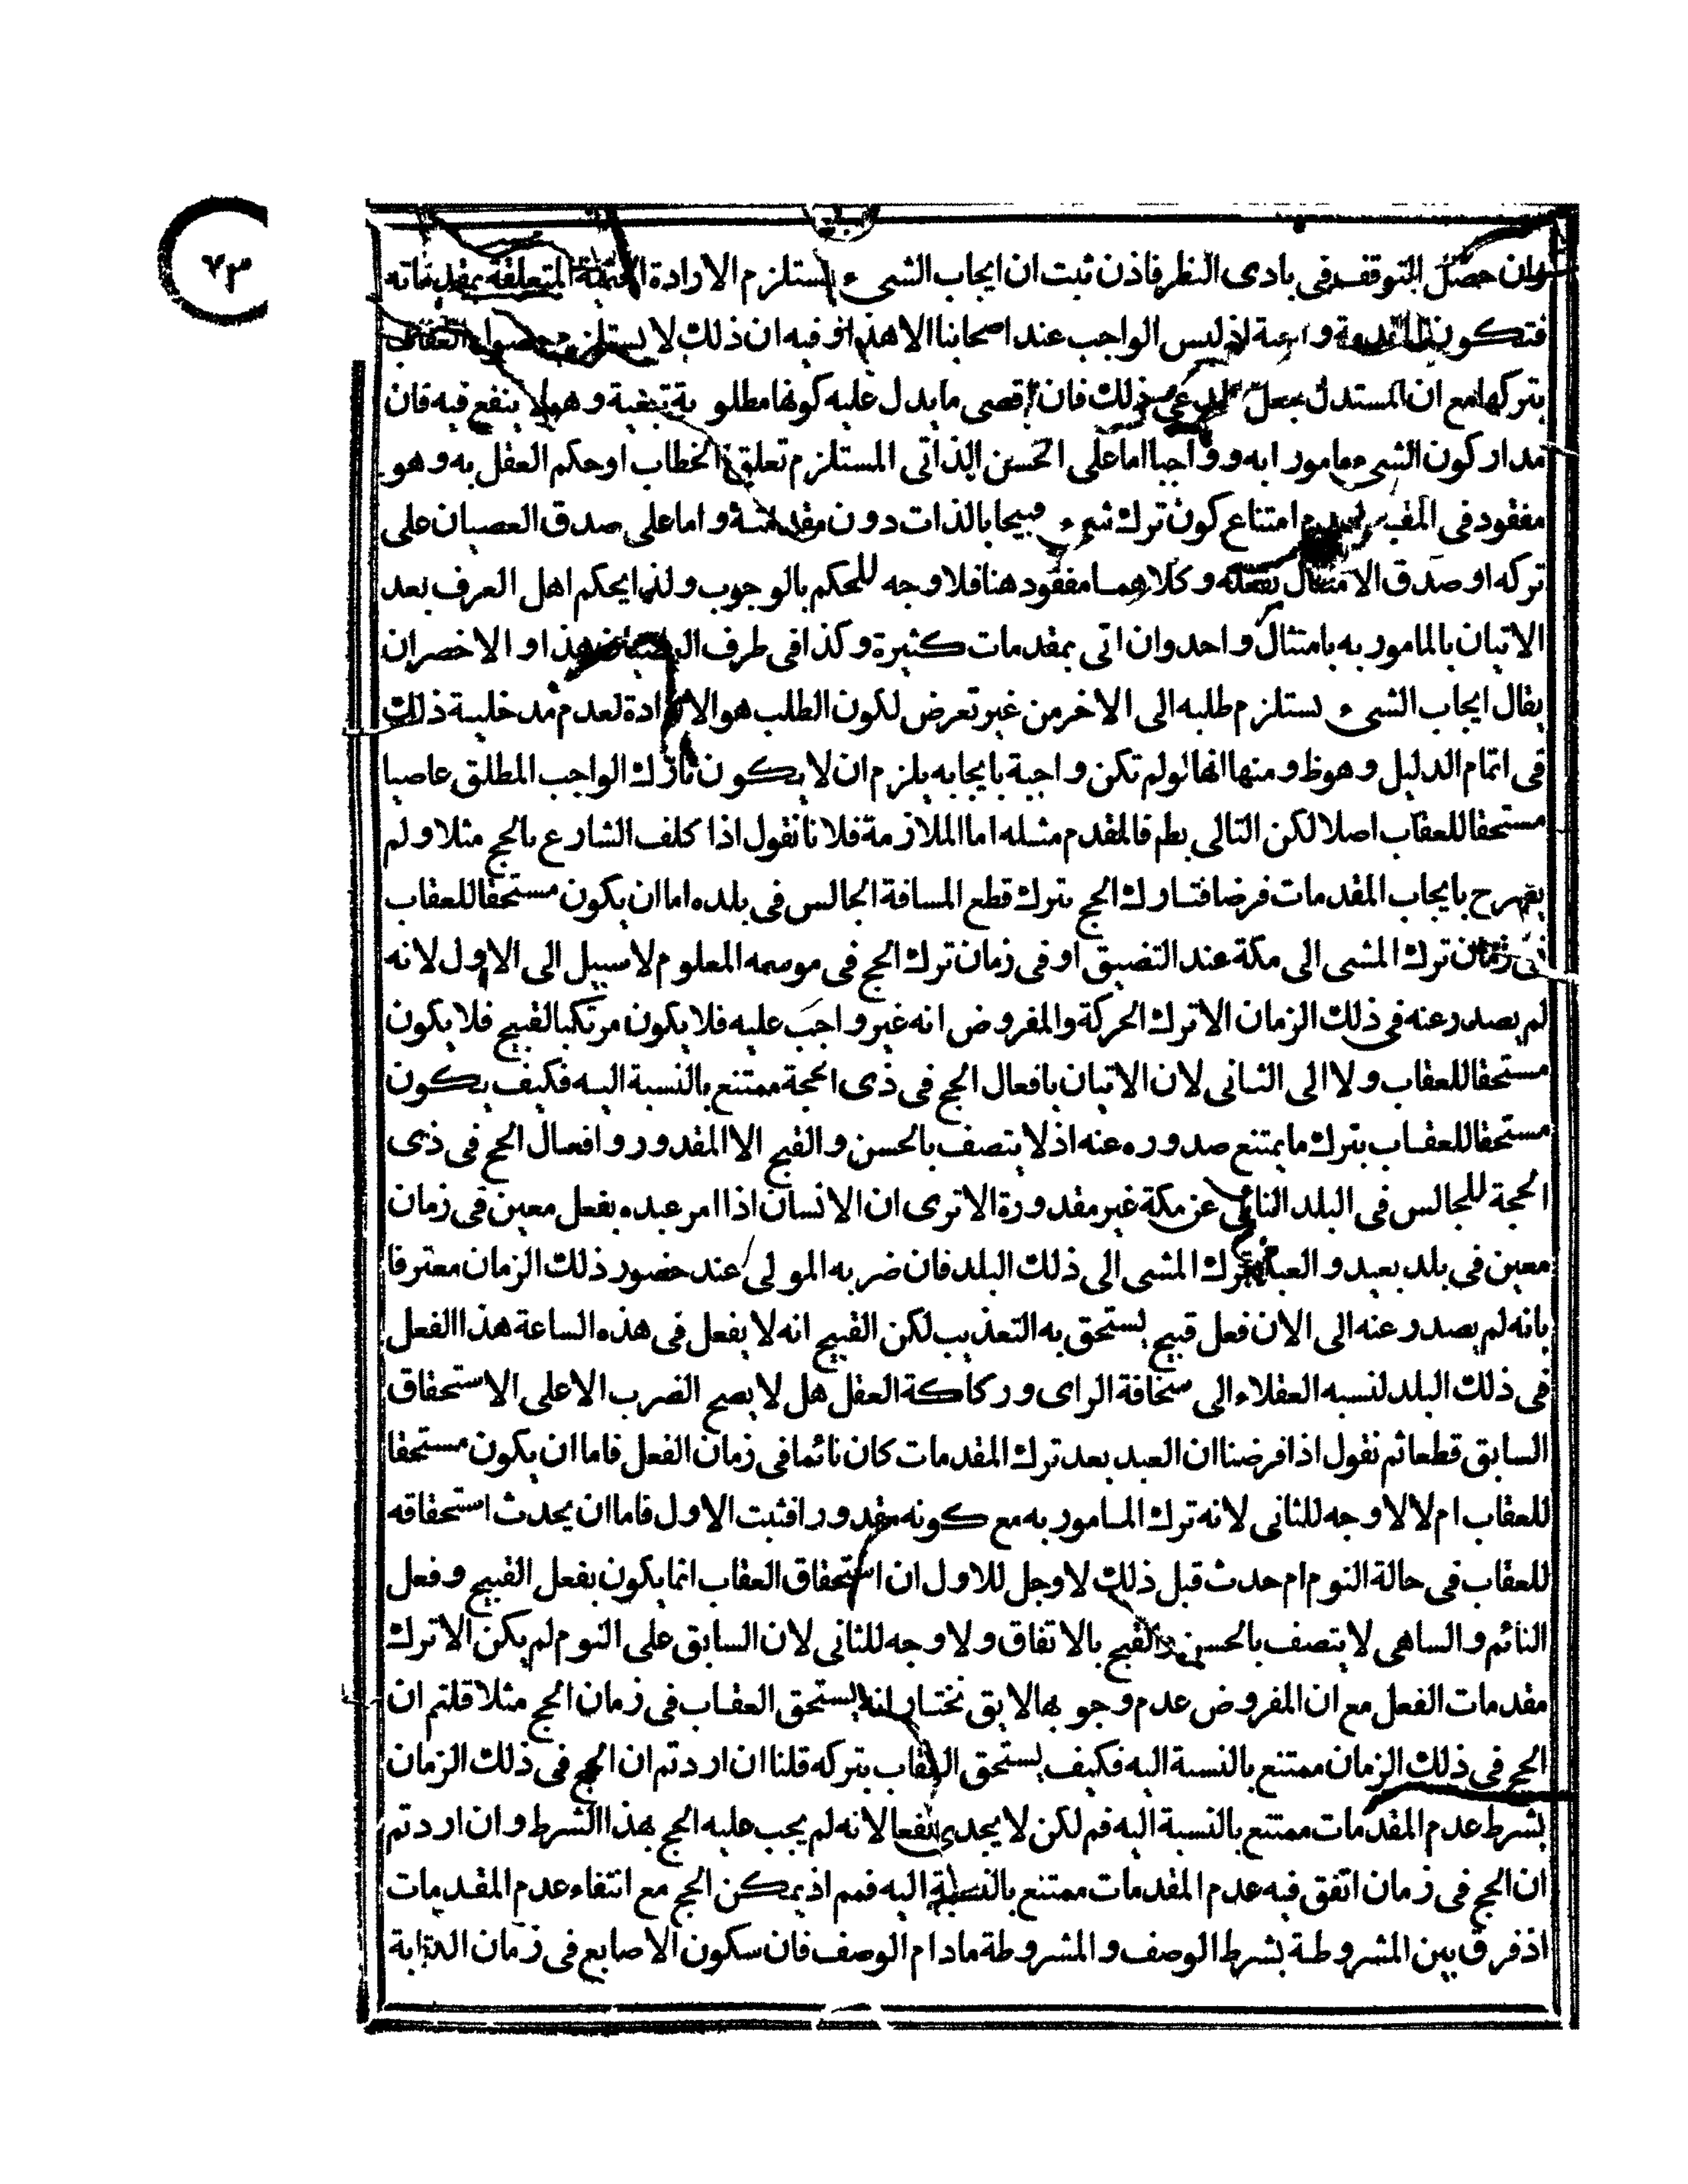 ٧٣
وان حصل التوقف فى بادى النظر فاذن ثبت ان ايجاب الشىء يستلزم الارادة الحتمية المتعلقة بمقدماته
فتكون واجبة اذ ليس الواجب عند اصحابنا الا هذا وفيه ان ذلك لا يستلزم حصول العقاب
بتركها مع ان المستدل ذلك فان اقصى ما يدل عليه كونها مطلوبة تبعية وهو لا ينفع فيه فان
مدار كون الشىء مامورا به وواجبا اما على الحسن الذاتى المستلزم تعلق الخطاب او حكم العقل به وهو
مفقود فى امتناع كون ترك شىء قبيحا بالذات دون مقدمته واما على صدق العصيان على
تركه او صدق الامتثال بفعله وكلاهما مفقود هنا فلا وجه للحكم بالوجوب ولذا يحكم اهل العرف بعد
الاتيان بالمامور به بامتثال واحد وان اتى بمقدمات كثيرة وكذا فى طرف هذا والاخصر ان
يقال ايجاب الشىء يستلزم طلبه الى الاخر من غير تعرض لكون الطلب هو الارادة لعدم مدخلية ذلك
فى اتمام الدليل وهو ظ ومنها انها لو لم تكن واجبة بايجابه يلزم ان لا يكون تارك الواجب المطلق عاصيا
مستحقا للعقاب اصلا لكن التالى بط فالمقدم مثله اما الملازمة فلانا نقول اذا كلف الشارع بالحج مثلا ولم
يصرح بايجاب المقدمات فرضا فتارك الحج بترك قطع المسافة الجالس فى بلده اما ان يكون مستحقا للعقاب
فى زمان ترك المشى الى مكة عند التضيق او فى زمان ترك الحج فى موسمه المعلوم لا سبيل الى الاول لانه
لم يصدر عنه فى ذلك الزمان الا ترك الحركة والمفروض انه غير واجب عليه فلا يكون مرتكبا لقبيح فلا يكون
مستحقا للعقاب ولا الى الثانى لان الاتيان بافعال الحج فى ذى الحجة ممتنع بالنسبة اليه فكيف يكون
مستحقا للعقاب بترك ما يمتنع صدوره عنه اذ لا يتصف بالحسن والقبح الا المقدور وافعال الحج فى ذى
الحجة للجالس فى البلد النائى عن مكة غير مقدورة الا ترى ان الانسان اذا امر عبده بفعل معين فى زمان
معين فى بلد بعيد والعبد ترك المشى الى ذلك البلد فان ضربه المولى عند حضور ذلك الزمان معترفا
بانه لم يصدر عنه الى الان فعل قبيح يستحق به التعذيب لكن القبيح انه لا يفعل فى هذه الساعة هذا الفعل
فى ذلك البلد لنسبه العقلاء الى سخافة الراى وركاكة العقل هل لا يصح الضرب الا على الاستحقاق
السابق قطعا ثم نقول اذا فرضنا ان العبد بعد ترك المقدمات كان نائما فى زمان الفعل فاما ان يكون مستحقا
للعقاب ام لا لا وجه للثانى لانه ترك المامور به مع كونه مقدورا فثبت الاول فاما ان يحدث استحقاقه
للعقاب فى حالة النوم ام حدث قبل ذلك لا وجل للاول ان استحقاق العقاب انما يكون بفعل القبيح وفعل
النائم والساهى لا يتصف بالحسن والقبح بالاتفاق ولا وجه للثانى لان السابق على النوم لم يكن الا ترك
مقدمات الفعل مع ان المفروض عدم وجوبها لا يق نختار انه يستحق العقاب فى زمان الحج مثلا قلتم ان
الحج فى ذلك الزمان ممتنع بالنسبة اليه فكيف يستحق العقاب بتركه قلنا ان اردتم ان الحج فى ذلك الزمان
بشرط عدم المقدمات ممتنع بالنسبة اليه فم لكن لا يجدى نفعا لانه لم يجب عليه الحج بهذا الشرط وان اردتم
ان الحج فى زمان اتفق فيه عدم المقدمات ممتنع بالنسبة اليه فمم اذ يمكن الحج مع انتفاء عدم المقدمات
اذ فرق بين المشروطة بشرط الوصف والمشروطة مادام الوصف فان سكون الاصابع فى زمان الكتابة